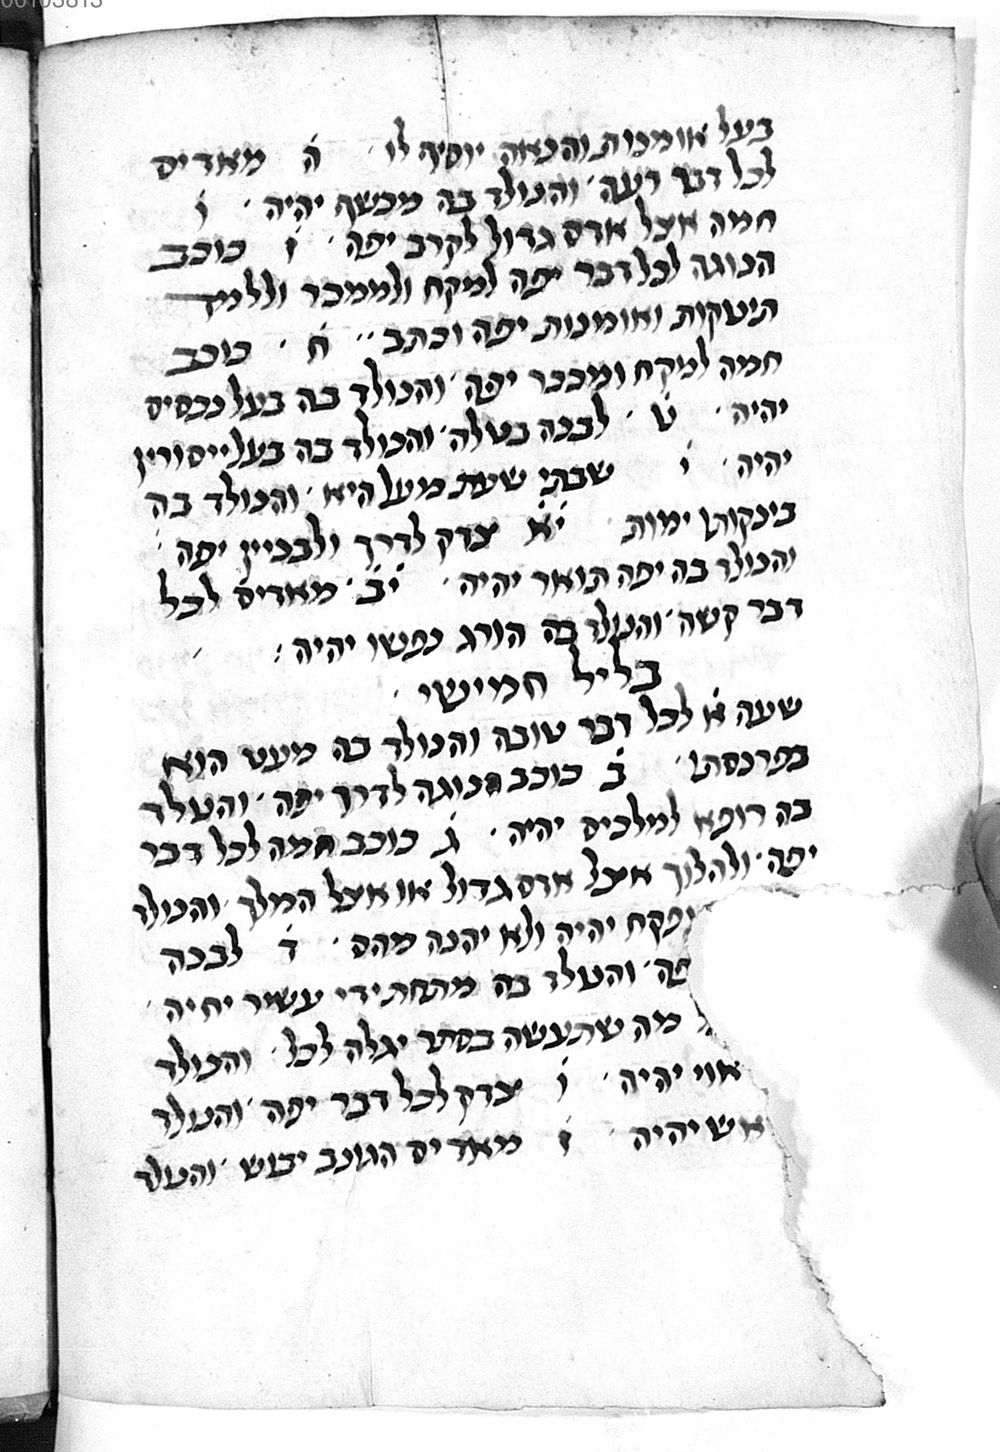 00103813
בעל אומנות והנאה יוסיף לו ה מאדים
לכל דבר רעה והנולד בה מכשף יהיה ו
חמה אצל אדם גדול לקרב יפה ז כוכב
הנוגה לכל דבר יפה למקח ולממכר וללמד
תינוקות ואומנות יפה וכתב ח כוכב
חמה למקח וממכר יפה והנולד בה בעל נכסים
יהיה ט לבנה בטלה והנולד בה בעל ייסורין
יהיה י שבתי שעת מעל היא והנולד בה
בינקותו ימות יא צדק לדרך ולבניין יפה
והנולד בה יפה תואר יהיה יב מאדים לכל
דבר קשה והנולד בה הורג נפשו יהיה :
בליל חמישי
שעה א לכל דבר טובה והנולד בה מעט הוא
בפרנסתו ב כוכב הנוגה לדרך יפה והנולד
בה רופא למלכים יהיה ג כוכב חמה לכל דבר
יפה ולהלוך אצל אדם גדול או אצל המלך והנולד
ופקח יהיה ולא יהנה מהם ד לבנה
פה והנולד בה מתחת ידי עשיר יחיה
מה שתעשה בסתר יגלה לכל והנולד
אוי יהיה ו צדק לכל דבר יפה והנולד
אש יהיה ז מאדים הגונב יבוש והנולד